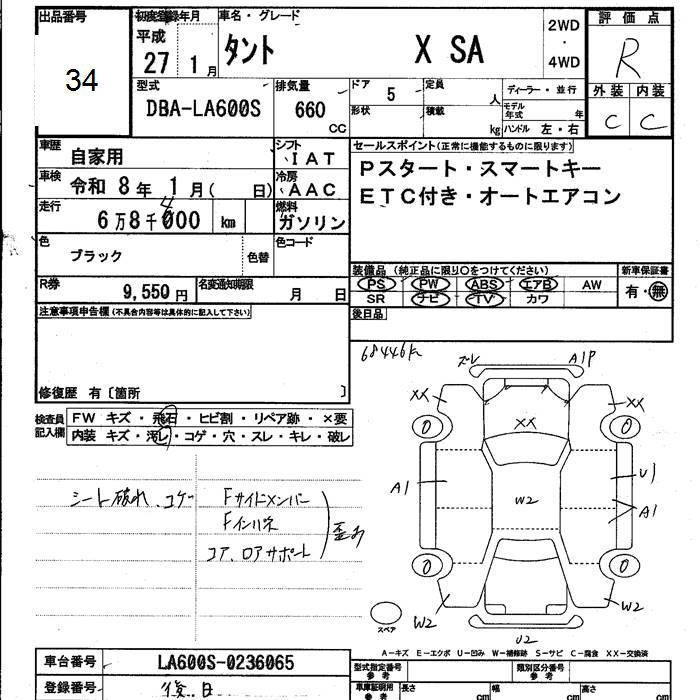 出品番号
34
初度登録年月
平成
27 1 月
車名・グレード
タント X SA
2WD
・
4WD
評価点
R
外装 内装
C C
型式
DBA-LA600S
排気量
660
CC
ドア 5
定員 人
形状
積載 kg
ディーラー・並行
モデル年式 年
ハンドル 左・右
車歴 自家用
シフト IAT
車検 令和 8 年 1 月( 日)
冷房 AAC
走行 6万8千000 km
4
燃料 ガソリン
色 ブラック 色替
色コード
R券 9,550 円
名変通知期限 月 日
セールスポイント(正常に機能するものに限ります)
Pスタート・スマートキー
ETC付き・オートエアコン
装備品 (純正品に限り○をつけてください)
PS PW ABS エアB AW
SR ナビ TV カワ
新車保証書
有・無
後日品
注意事項申告欄(不具合内容等は具体的に記入して下さい)
修復歴 有〔箇所 〕
検査員記入欄
FW キズ・飛石・ヒビ割・リペア跡・×要
内装 キズ・汚レ・コゲ・穴・スレ・キレ・破レ
シート破れ、コゲ
Fサイドメンバー
Fインハネ
コア、ロアサポート
歪み
68446K
ズレ A1P
XX XX
XX
A1 U1
A1
W2
W2 W2
U2
スペア
A-キズ E-エクボ U-凹み W-補修跡 S-サビ C-腐食 XX-交換済
車台番号 LA600S-0236065
登録番号 後日
型式指定番号
参考
類別区分番号
参考
車庫証明用
参考
長さ cm
幅 cm
高さ cm